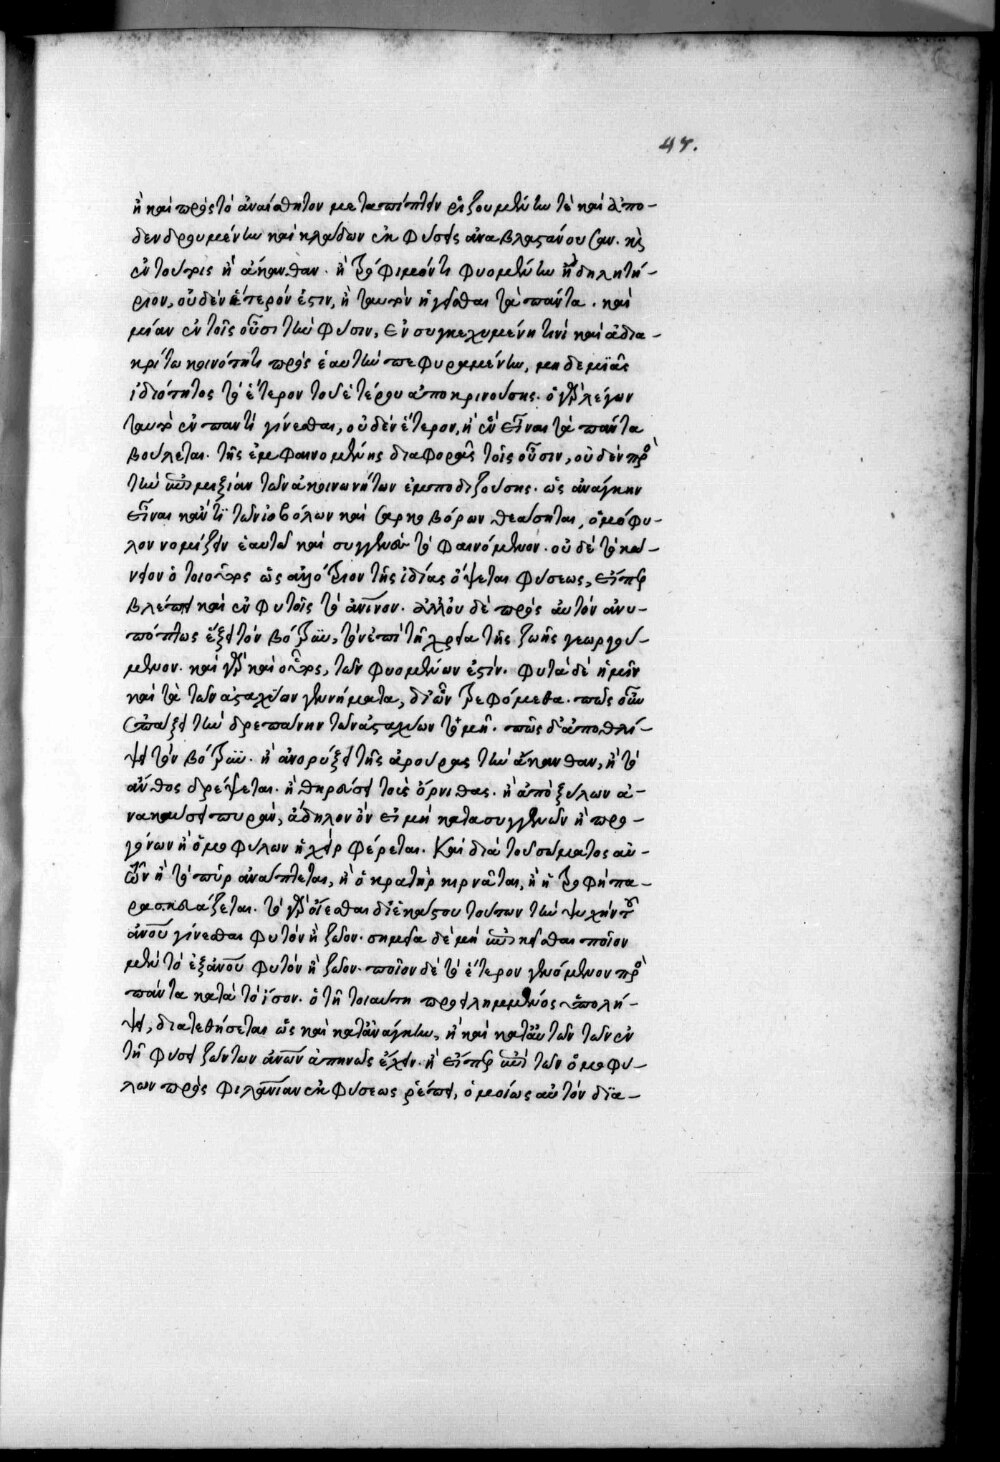 47.
ἢ καὶ πρὸς τὸ ἀναίσθητον μεταπίπτειν ῥιζουμένην τὲ καὶ ἀπο-
δενδρουμένην καὶ κλάδων ἐκ φύσεως ἀναβλαστάνουσαν. καὶ
ἐν τούτοις ἢ ἄκανθαν. ἢ τρόφιμόν τι φυομένην ἢ δηλητή-
ριον, οὐδὲν ἕτερόν ἐστιν, ἢ ταυτὸν ἡγεῖσθαι τὰ πάντα. καὶ
μίαν ἐν τοῖς οὖσι τὴν φύσιν, ἐν συγκεχυμένῃ τινὶ καὶ ἀδια-
κρίτω κοινότητι πρὸς ἑαυτὴν πεφυραμένην, μηδεμιᾶς
ἰδιότητος τὸ ἕτερον τοῦ ἑτέρου ἀποκρινούσης. ὁ γὰρ λέγων
ταυτὸν ἐν παντὶ γίνεσθαι, οὐδὲν ἕτερον, ἢ ἓν εἶναι τὰ πάντα
βούλεται. τῆς ἐμφαινομένης διαφορᾶς τοῖς οὖσιν, οὐδὲν πρὸς
τὴν ἐπιμιξίαν τῶν ἀκοινωνήτων ἐμποδιζούσης. ὡς ἀνάγκην
εἶναι κἄν τι τῶν ἰοβόλων καὶ σαρκοβόρων θεάσηται, ὁμόφυ-
λον νομίζειν ἑαυτῶ καὶ συγγενὲς τὸ φαινόμενον. οὐδὲ τὸ κώ-
νειον ὁ τοιοῦτος ὡς ἀλλότριον τῆς ἰδίας ὄψεται φύσεως, εἴπερ
βλέπει καὶ ἐν φυτοῖς τὸ ἀνῖνον. ἀλλ' οὐδὲ πρὸς αὐτὸν ἀνυ-
πόπτως ἕξει τὸν βότρυν, τὸν ἐπὶ τῆ χρεία τῆς ζωῆς γεωργού-
μενον. καὶ γὰρ καὶ οὗτος, τῶν φυομένων ἐστίν. φυτὰ δὲ ἡμῖν
καὶ τὰ τῶν ἀσταχύων γεννήματα, δι' ὧν τρεφόμεθα. πῶς οὖν
ἐπάξει τὴν δρεπάνην τῶν ἀσταχύων τῆ τομῆ. πῶς δ' ἀποθλί-
ψει τὸν βότρυν. ἢ ἀνορύξει τῆς ἀρούρας τὴν ἄκανθαν, ἢ τὸ
ἄνθος δρέψεται. ἢ θηρεύσει τοὺς ὄρνιθας. ἢ ἀπὸ ξύλων ἀ-
νακαύσει πυρὰν, ἄδηλον ὂν εἰ μὴ κατὰ συγγενῶν ἢ προ-
γόνων ἢ ὁμοφύλων ἡ χεὶρ φέρεται. Καὶ διὰ τοῦ σώματος αὐ-
τῶν ἢ τὸ πῦρ ἀνάπτεται, ἢ ὁ κρατὴρ κιρνᾶται, ἢ ἡ τροφὴ πα-
ρασκευάζεται. τὸ γὰρ οἴεσθαι δι' ἑκάστου τούτων τὴν ψυχὴν τοῦ
ἀνου γίνεσθαι φυτὸν ἢ ζῶον. σημεῖα δὲ μὴ ἐπικεῖσθαι ποῖον
μὲν τὸ ἐξ ἀνου φυτὸν ἢ ζῶον. ποῖον δὲ τὸ ἕτερον γενόμενον πρὸς
πάντα κατὰ τὸ ἴσον. ὁ τῆ τοιαύτη προειλημμένος ὑπολή-
ψει, διατεθήσεται ὡς καὶ κατ' ἀνάγκην, ἢ καὶ κατ' αὐτῶν τῶν ἐν
τῆ φύσει ζώντων ἀνων ἀπηνῶς ἔχειν. ἢ εἴπερ ἐπὶ τῶν ὁμοφύ-
λων πρὸς φιλανίαν ἐκ φύσεως ῥέπει, ὁμοίως αὐτὸν δια-